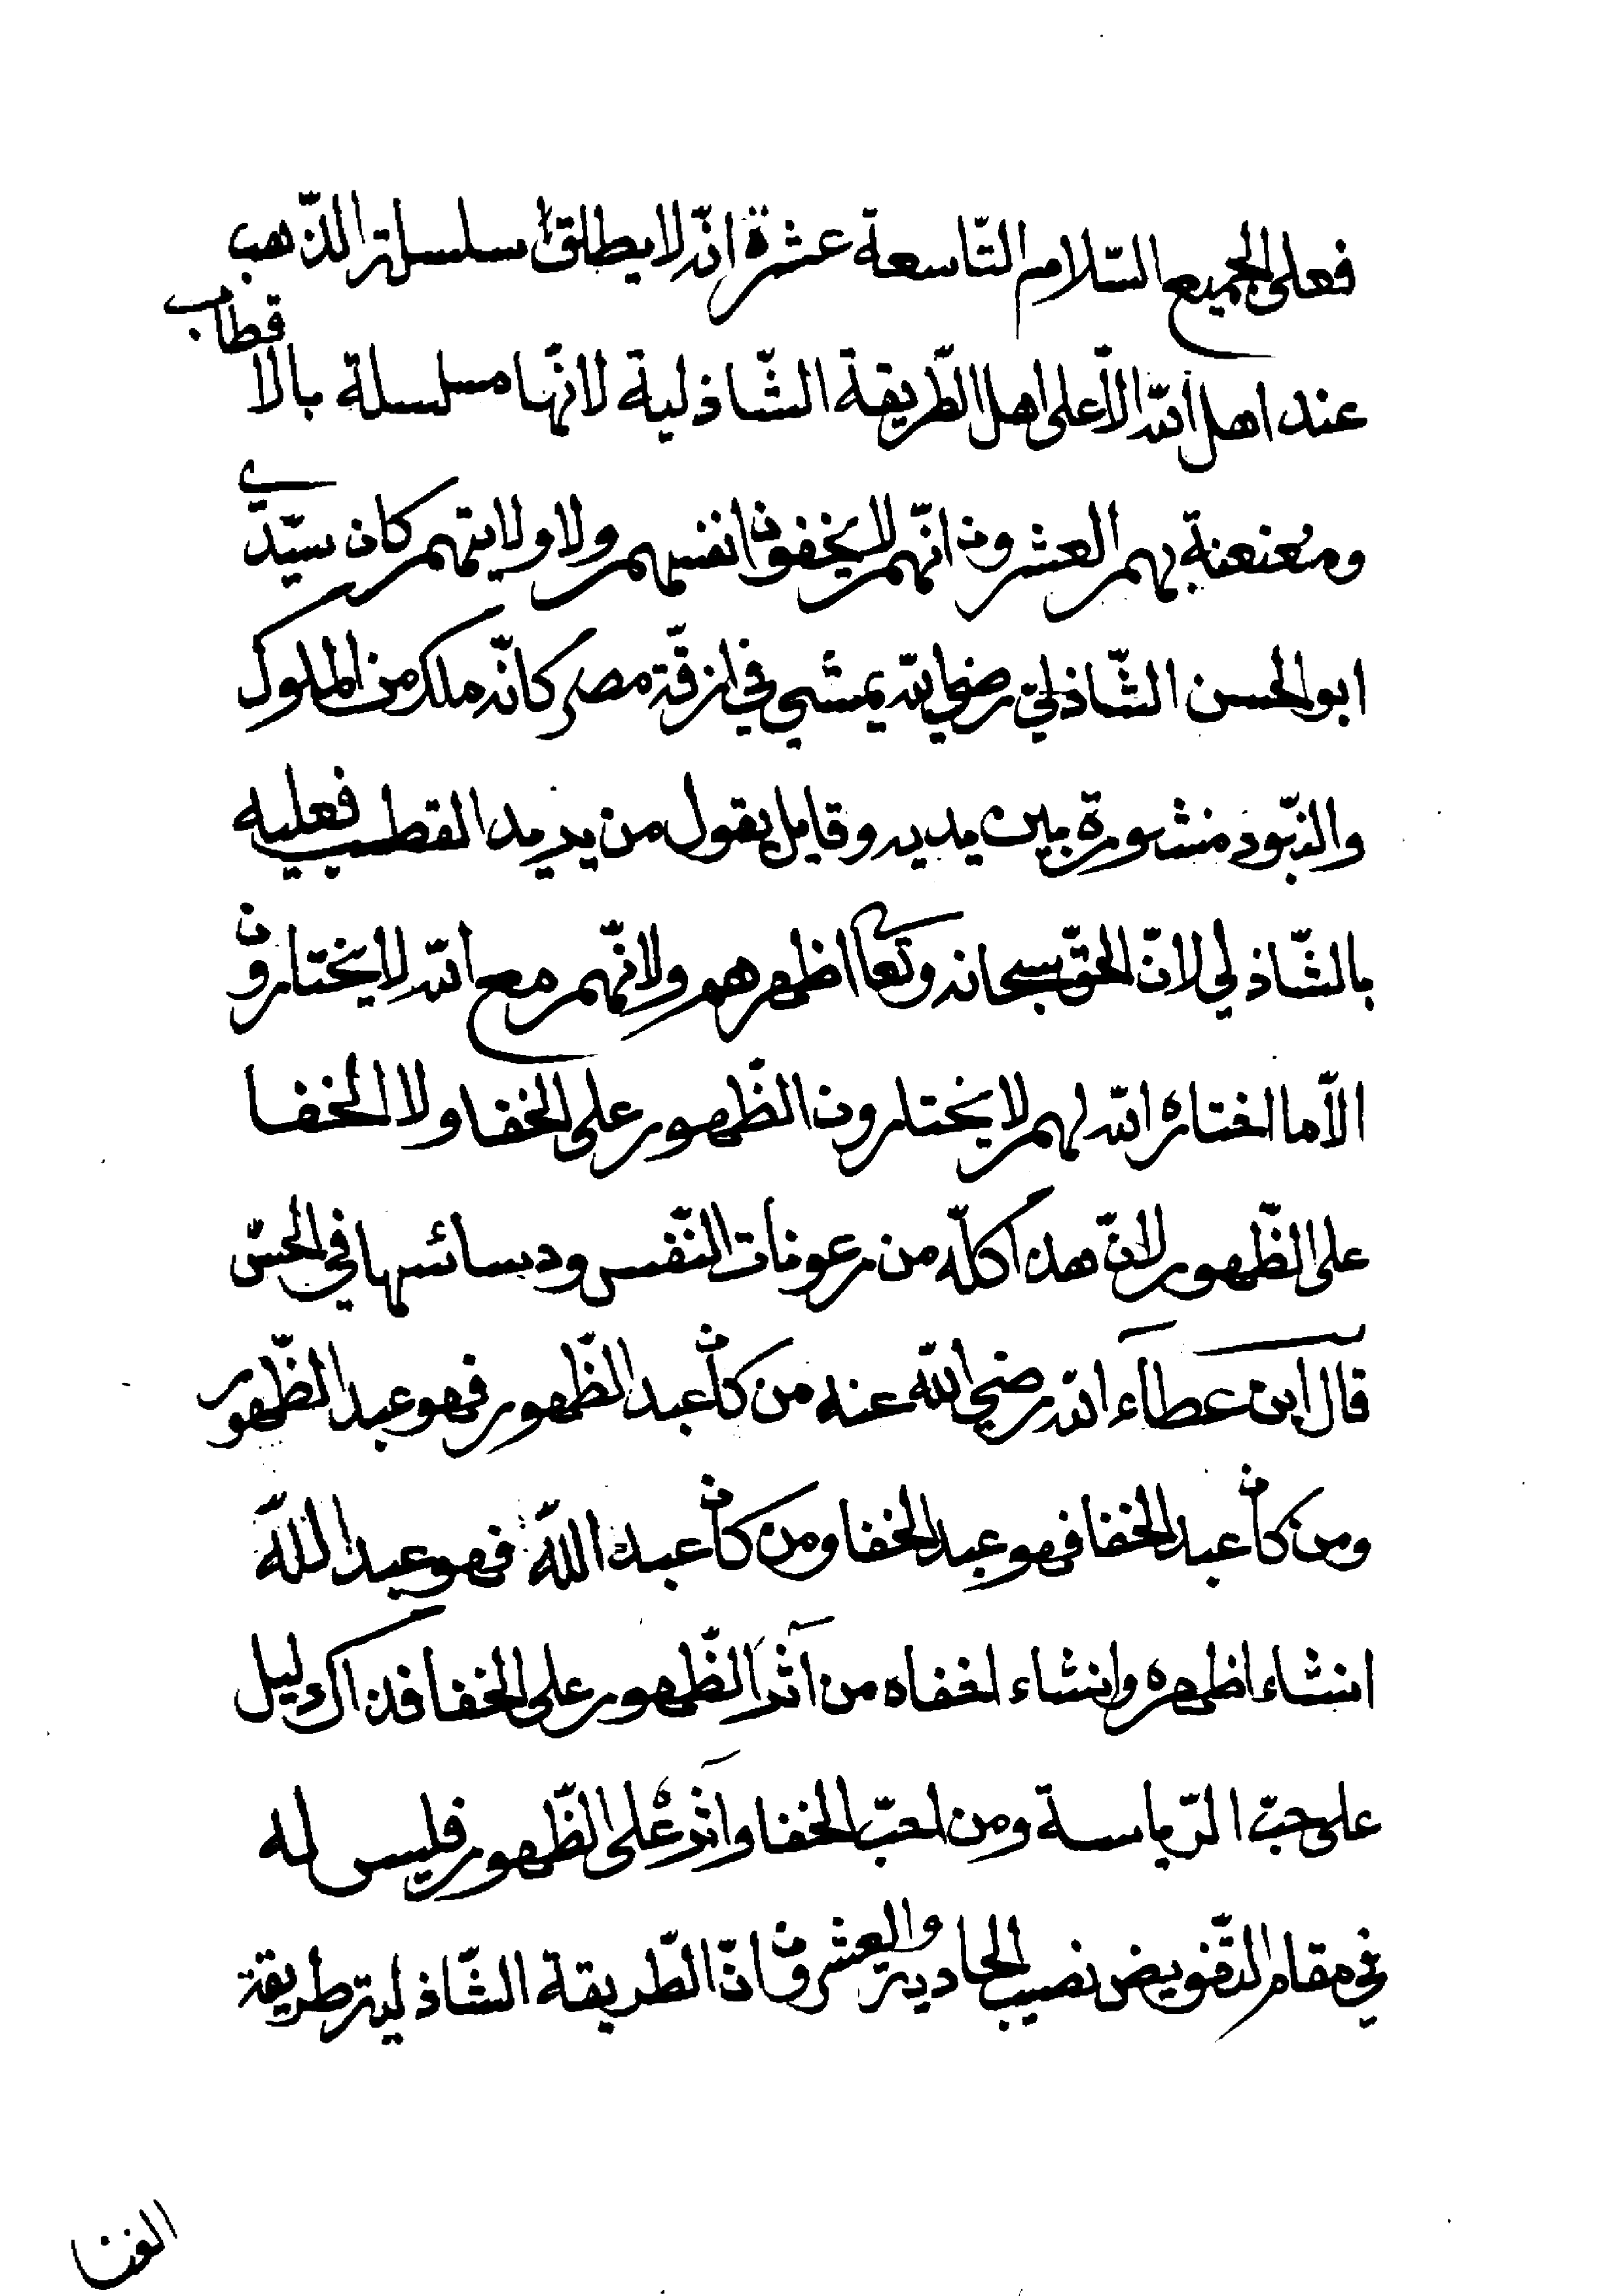 فعلى الجميع السّلام التّاسعة عشرة انّه لا يطلق سلسلة الذّهب
عند اهل الله الاّ على اهل الطّريقة الشّاذلية لانّها مسلسلة بالاقطاب
ومعنعنة بهم العشرون انّهم لا يخفون انفسهم ولا ولايتهم كان سيّدي
ابو الحسن الشّاذليّ رضي الله يمشي في ازقّة مصر كانّه ملك من الملوك
والبنود منشورة بين يديه وقايل يقول من يريد القطب فعليه
بالشّاذلي لانّ الحقّ سبحانه وتعا اظهرهم ولانّهم مع الله لا يختارون
الاّ ما اختاره الله لهم لا يختارون الظّهور على الخفا ولا الخفا
على الظّهور لانّ هذا كلّه من رعونات النّفس ودسائسها في الحسّ
قال ابن عطاء الله رضي الله عنه من كان عبد الظّهور فهو عبد الظّهور
ومن كان عبد الخفا فهو عبد الخفا ومن كان عبد اللّه فهو عبد اللّه
انشاء اظهره وانشاء اخفاه من آثر الظّهور على الخفا فذاك دليل
على حبّ الرّياسة ومن احبّ الخفا وآثره على الظّهور فليس له
في مقام التّفويض نصيب الحادية والعشرون انّ الطّريقة الشّاذلية طريقة
الغنا